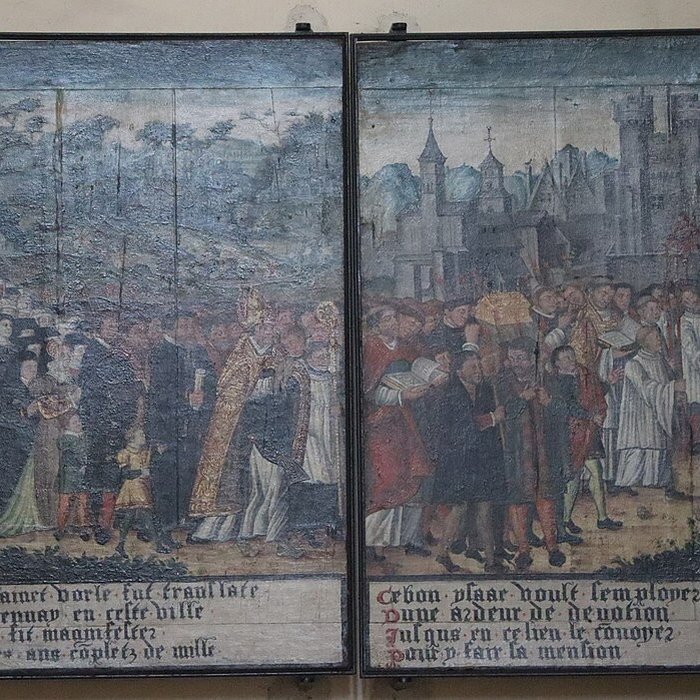 ainct vorle fut translate
en ceste ville
fit magnifester
ans cõpletz de mille
Cebon ysaac voult semployer
Dune ardeur de devotion
Jusques en ce lieu le cõvoyer
Pour y fair sa mension